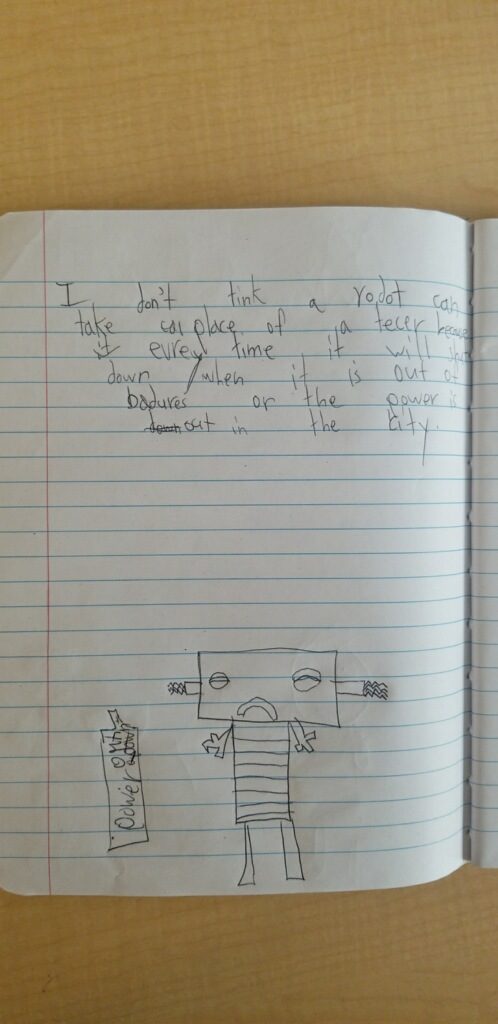 I don't tink a rodot can
take place of a tecer because
it evrey time it will shut
down when it is out of
badures or the power is
out in the city.
power